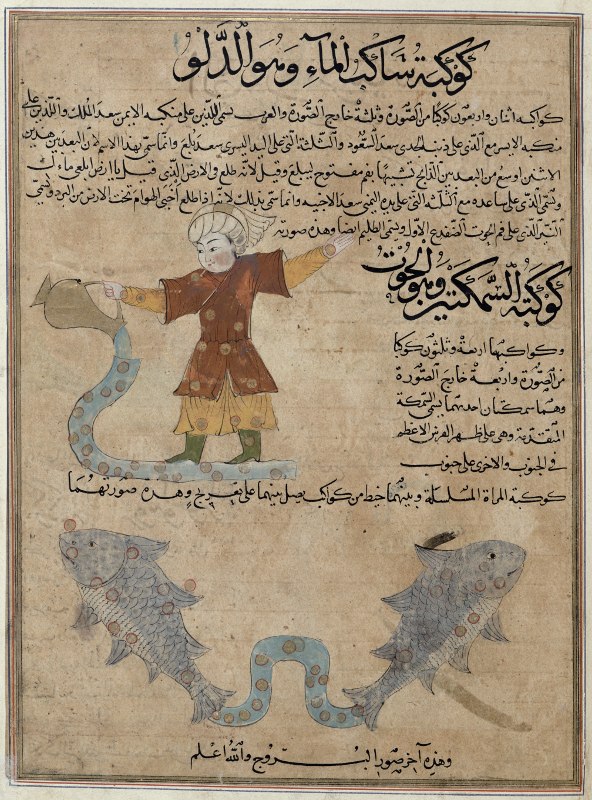 كوكبة ساكب الماء وهو الدلو
كواكبه اثنان واربعون كوكبا من الصورة وثلثة خارج الصورة والعرب يسمى اللذين على منكبه الايمن سعد الملك واللذين على
منكبه الايسر مع الذى على ذنب الجدى سعد السعود والثلثة التى على اليد اليسرى سعد بلع وانما سمى بهذا الاسم لان البعد بين هذين
الاثنين اوسع من البعد بين الذابح تشبيها بفم مفتوح ليبلع وقيل لانه طلع والارض الذى قيل يا ارض ابلعى ماءك
ويسمى الذى على ساعده مع الثلثة التى على يده اليمنى سعد الاخبية وانما سمى بذلك لانه اذا طلع اختبى الهوام تحت الارض من البرد ويسمى
النير الذى على فم الحوت الضفدع الاول ويسمى الظليم ايضا وهذه صورته
كوكبة السمكتين وهو الحوت
وكواكبهما اربعة وثلثون كوكبا
من الصورة واربعة خارج الصورة
وهما سمكتان احديهما يسمى السمكة
المتقدمة وهى على ظهر الفرس الاعظم
فى الجنوب والاخرى على جنوب
كوكبة المراة المسلسلة وبينهما خيط من كواكب يصل بينهما على تعريج وهذه صورتهما
وهذه آخر صور البروج والله اعلم